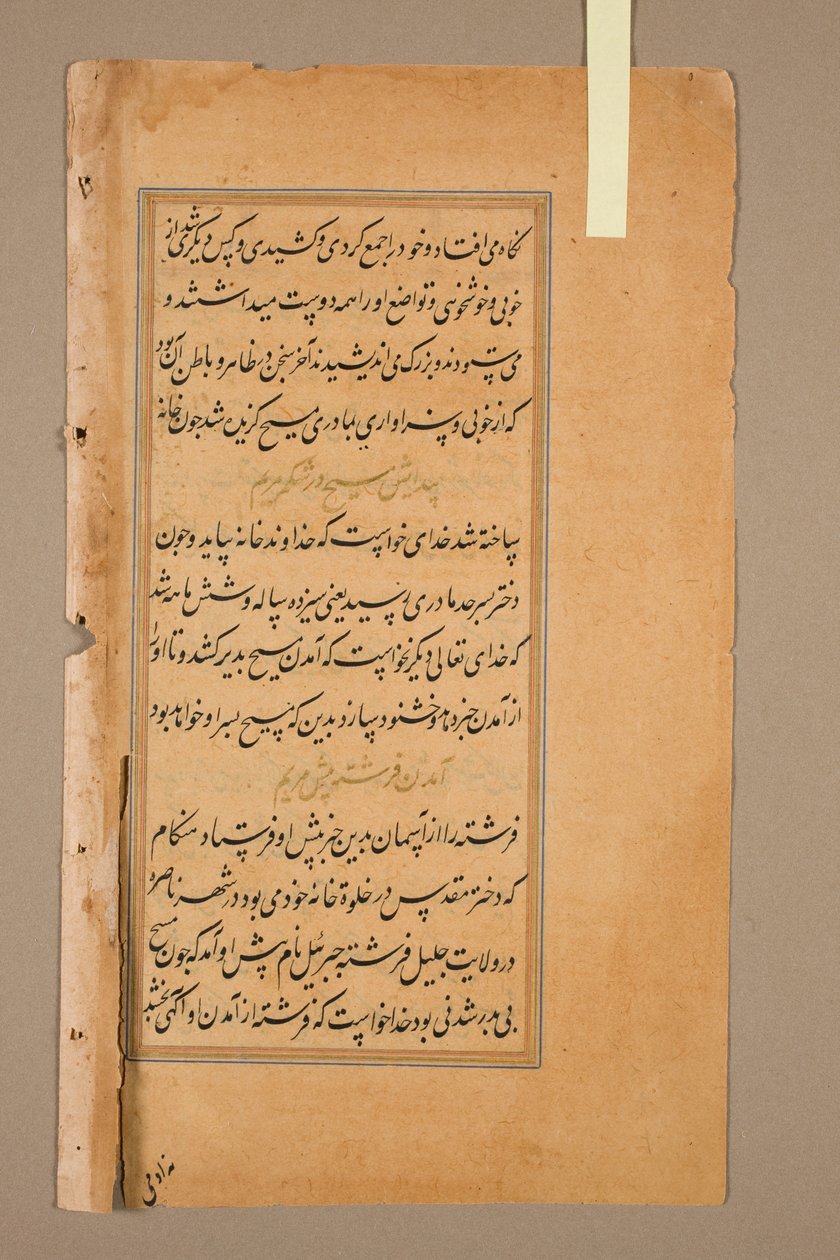 نکاه می افتاد و خود را جمع کردی و کشیدی و کس دیکری شد از
خوبی و خوشخوئی و تواضع او را همه دوست میداشتند و
می ستودند و بزرک می اندیشیدند آخر سخن در ظاهر و باطن آن بود
که از خوبی و سزاواری بمادری مسیح کزیده شد جون خانه
پیدایش مسیح در شکم مریم
ساخته شد خدای خواست که خداوند خانه بیاید و جون
دختر بسر حد مادری رسید یعنی سیزده ساله و شش ماهه شد
که خدای تعالی دیکر نخواست که آمدن مسیح بدیر کشد و تا او را
از آمدن خبر دهد و خشنود سازد بدین که مسیح بسر او خواهد بود
آمدن فرشته پیش مریم
فرشته را از آسمان بدین خبر پیش او فرستاد هنکام
که دختر مقدس در خلوة خانه خود می بود در شهر ناصره
در ولایت جلیل فرشته جبرئیل نام پیش او آمد که جون مسیح
بی بدر شدنی بود خدا خواست که فرشته از آمدن او آکهی بخشد
نه آدمی